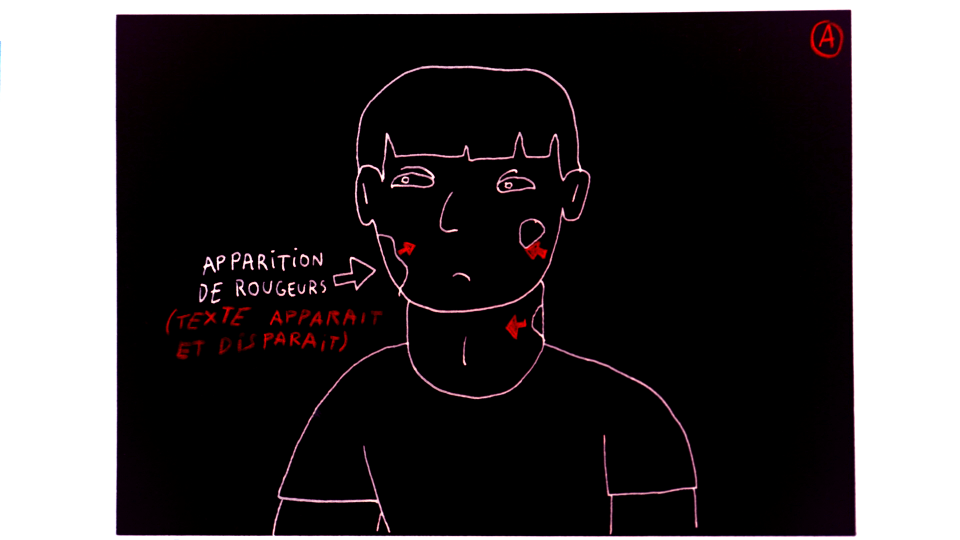 A
APPARITION
DE ROUGEURS
(TEXTE APPARAIT
ET DISPARAIT)